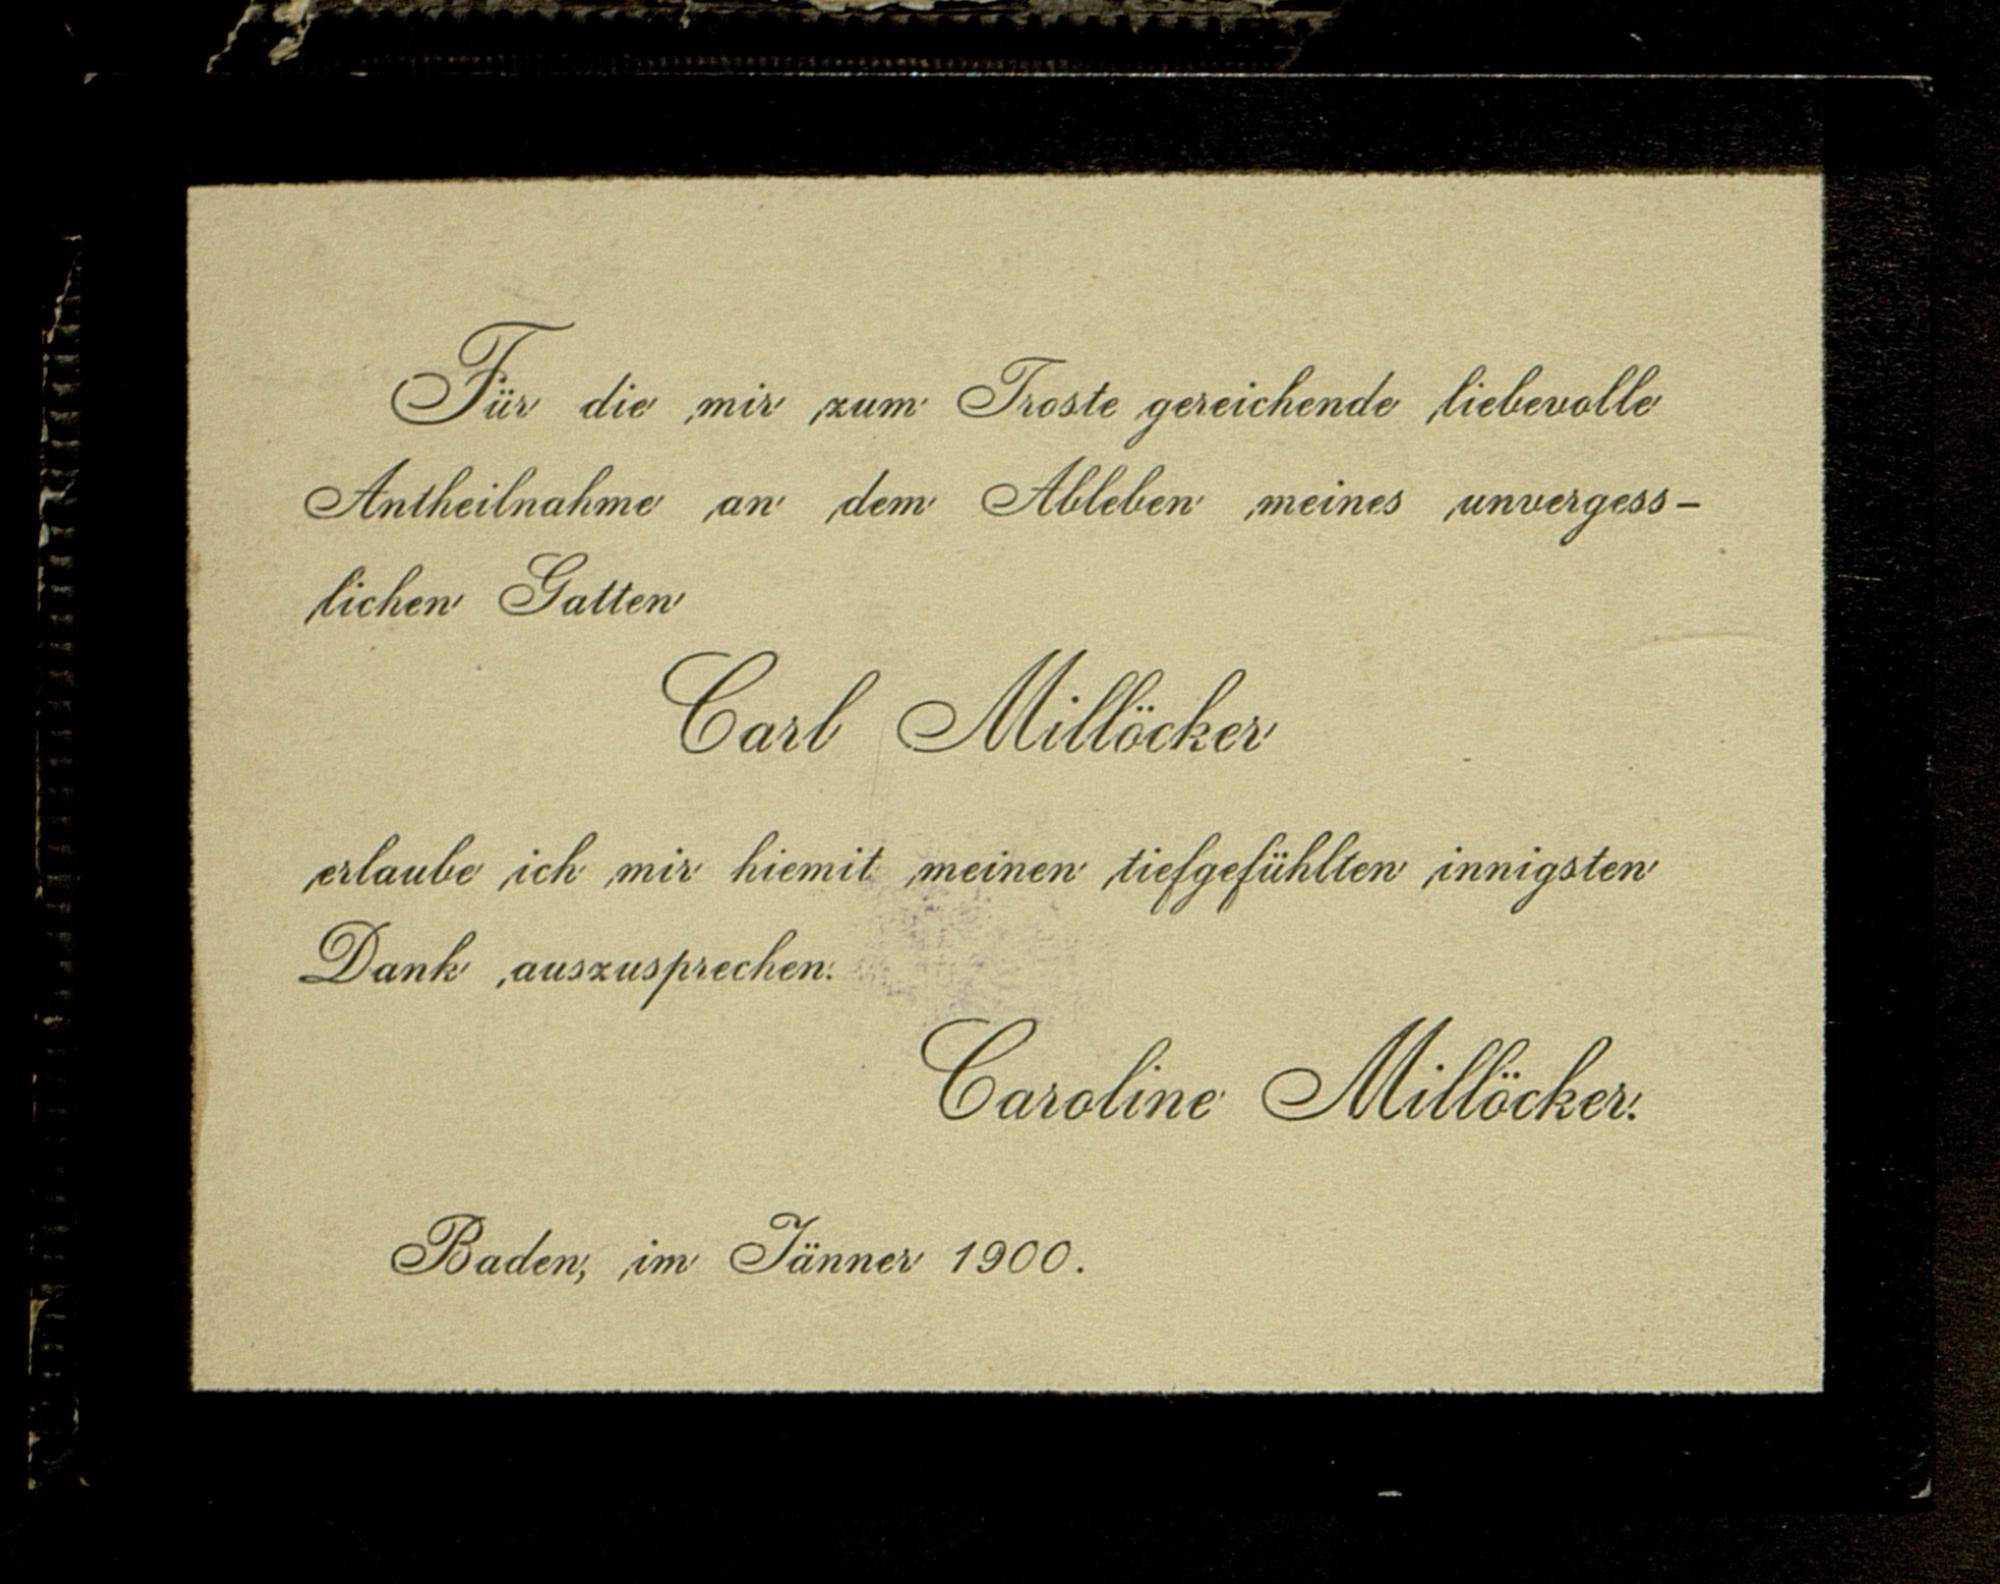 Für die mir zum Troste gereichende liebevolle
Antheilnahme an dem Ableben meines unvergess-
lichen Gatten
Carl Millöcker
erlaube ich mir hiemit meinen tiefgefühlten innigsten
Dank auszusprechen.
Caroline Millöcker.
Baden, im Jänner 1900.